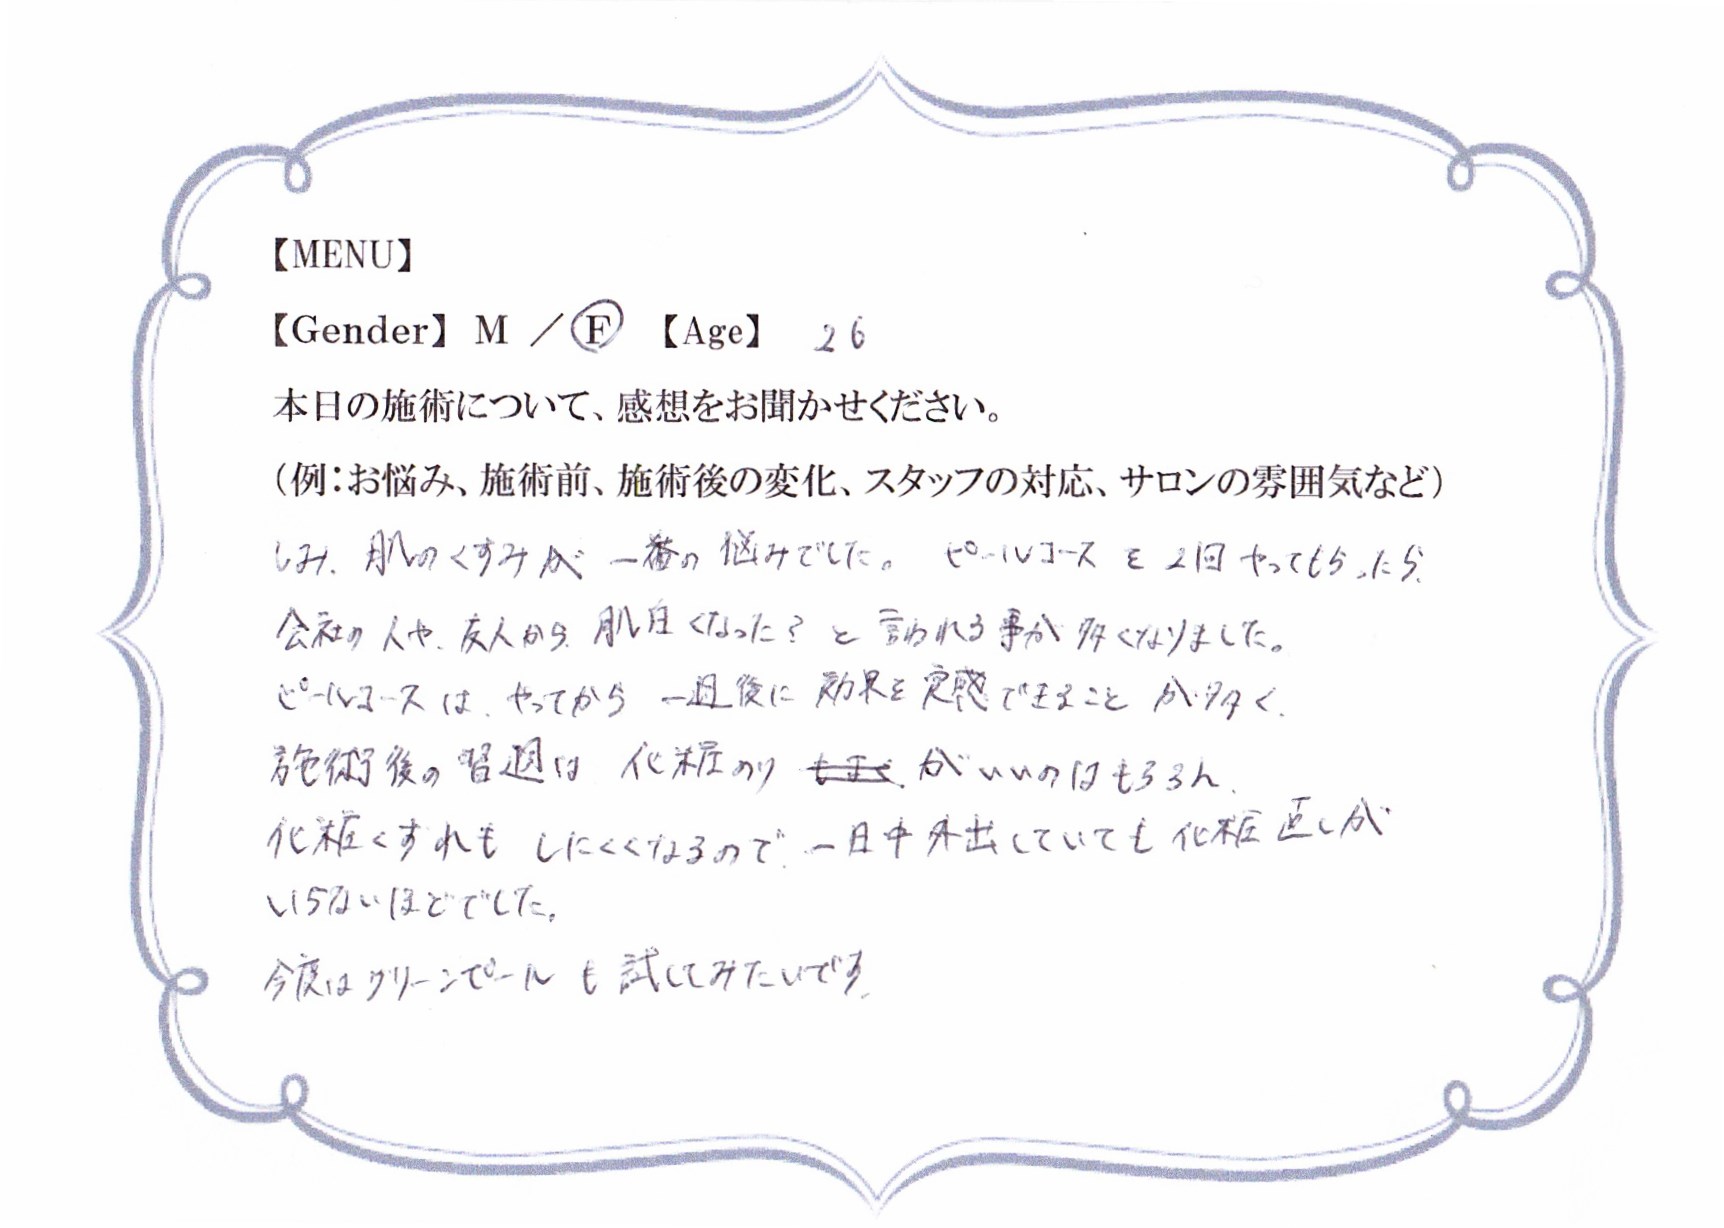 【MENU】
【Gender】 M ／ F 【Age】 26
本日の施術について、感想をお聞かせください。
（例：お悩み、施術前、施術後の変化、スタッフの対応、サロンの雰囲気など）
しみ、肌のくすみが 一番の 悩みでした。 ピールコース を 2回 やってもらったら、
会社の 人や、友人から、肌白くなった？ と 言われる事が 多くなりました。
ピールコース は、やってから 一週後に 効果を 実感できること が多く、
施術後の 習週は 化粧のり がいいのはもちろん、
化粧くずれも しにくくなるので、一日中 外出していても 化粧直しが
いらないほどでした。
今度は グリーンピール も 試してみたいです。